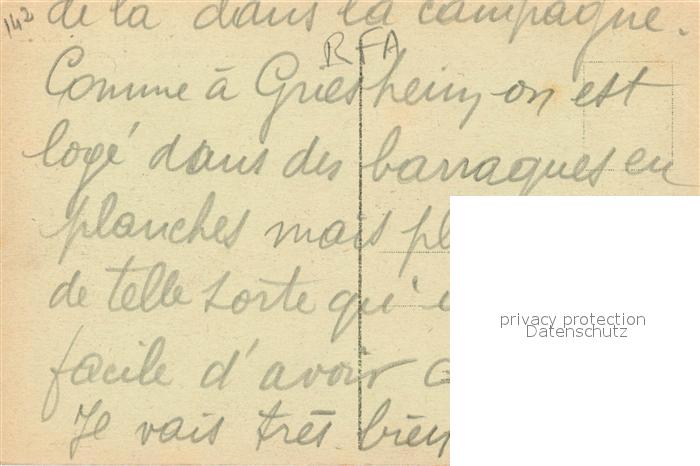 142
de là dans la campagne.
RFA
Comme à Griesheim on est
logé dans des barraques en
planches mais pl
de telle sorte qu'i
facile d'avoir
Je vais très bien
privacy protection
Datenschutz